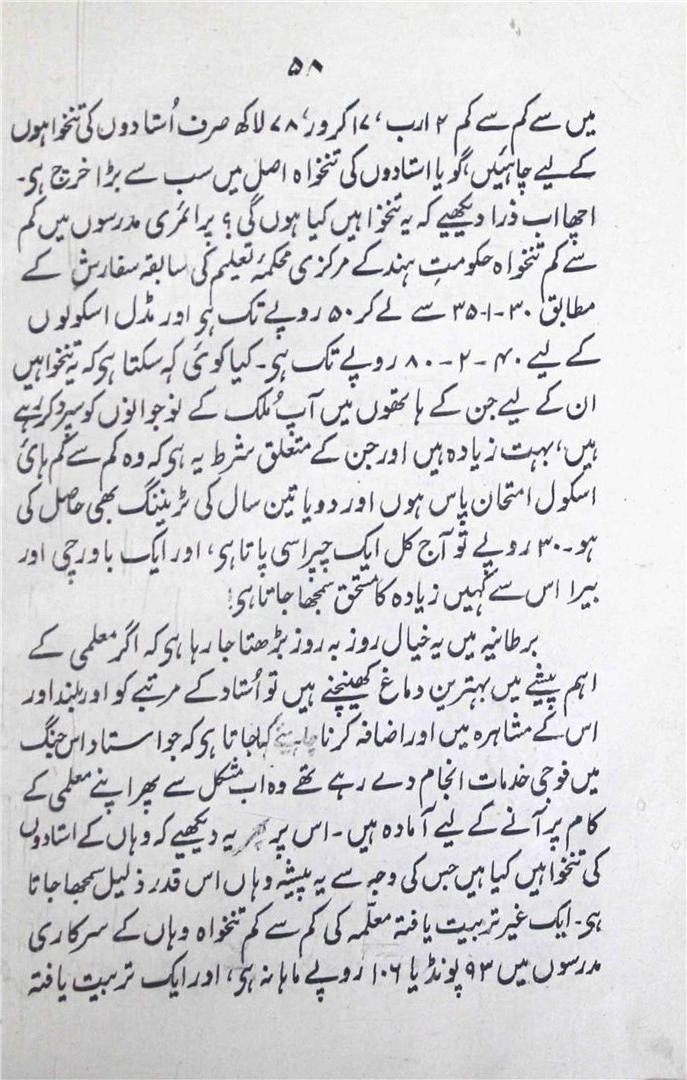 ۵۸
میں سے کم سے کم ۲ ارب، ۱۷ کروڑ، ۷۸ لاکھ صرف اُستادوں کی تنخواہوں
کے لیے چاہئیں، گویا استادوں کی تنخواہ اصل میں سب سے بڑا خرچ ہی۔
اچھا اب ذرا دیکھیے کہ یہ تنخواہیں کیا ہوں گی؟ پرائمری مدرسوں میں کم
سے کم تنخواہ حکومتِ ہند کے مرکزی محکمۂ تعلیم کی سابقہ سفارش کے
مطابق ۳۰-۱-۳۵ سے لے کر ۵۰ روپے تک ہی اور مڈل اسکولوں
کے لیے ۴۰-۲-۸۰ روپے تک ہی۔ کیا کوئی کہ سکتا ہی کہ یہ تنخواہیں
ان کے لیے جن کے ہاتھوں میں آپ مُلک کے نوجوانوں کو سپرد کر رہے
ہیں، بہت زیادہ ہیں اور جن کے متعلق شرط یہ ہی کہ وہ کم سے کم ہائی
اسکول امتحان پاس ہوں اور دو یا تین سال کی ٹریننگ بھی حاصل کی
ہو۔ ۳۰ روپے تو آج کل ایک چپراسی پاتا ہی، اور ایک باورچی اور
بیرا اس سے کہیں زیادہ کا مستحق سمجھا جاتا ہی!
برطانیہ میں یہ خیال روز بہ روز بڑھتا جا رہا ہی کہ اگر معلمی کے
اہم پیشے میں بہترین دماغ کھینچنے ہیں تو اُستاد کے مرتبے کو اور بلند اور
اس کے مشاہرہ میں اور اضافہ کرنا چاہیئے کہا جاتا ہی کہ جو استاد اس جنگ
میں فوجی خدمات انجام دے رہے تھے وہ اب مشکل سے پھر اپنے معلمی کے
کام پر آنے کے لیے آمادہ ہیں۔ اس پر پھر یہ دیکھیے کہ وہاں کے استادوں
کی تنخواہیں کیا ہیں جس کی وجہ سے یہ پیشہ وہاں اس قدر ذلیل سمجھا جاتا
ہی۔ ایک غیر تربیت یافتہ معلّمہ کی کم سے کم تنخواہ وہاں کے سرکاری
مدرسوں میں ۹۳ پونڈ یا ۱۰۶ روپے ماہانہ ہی، اور ایک تربیت یافتہ